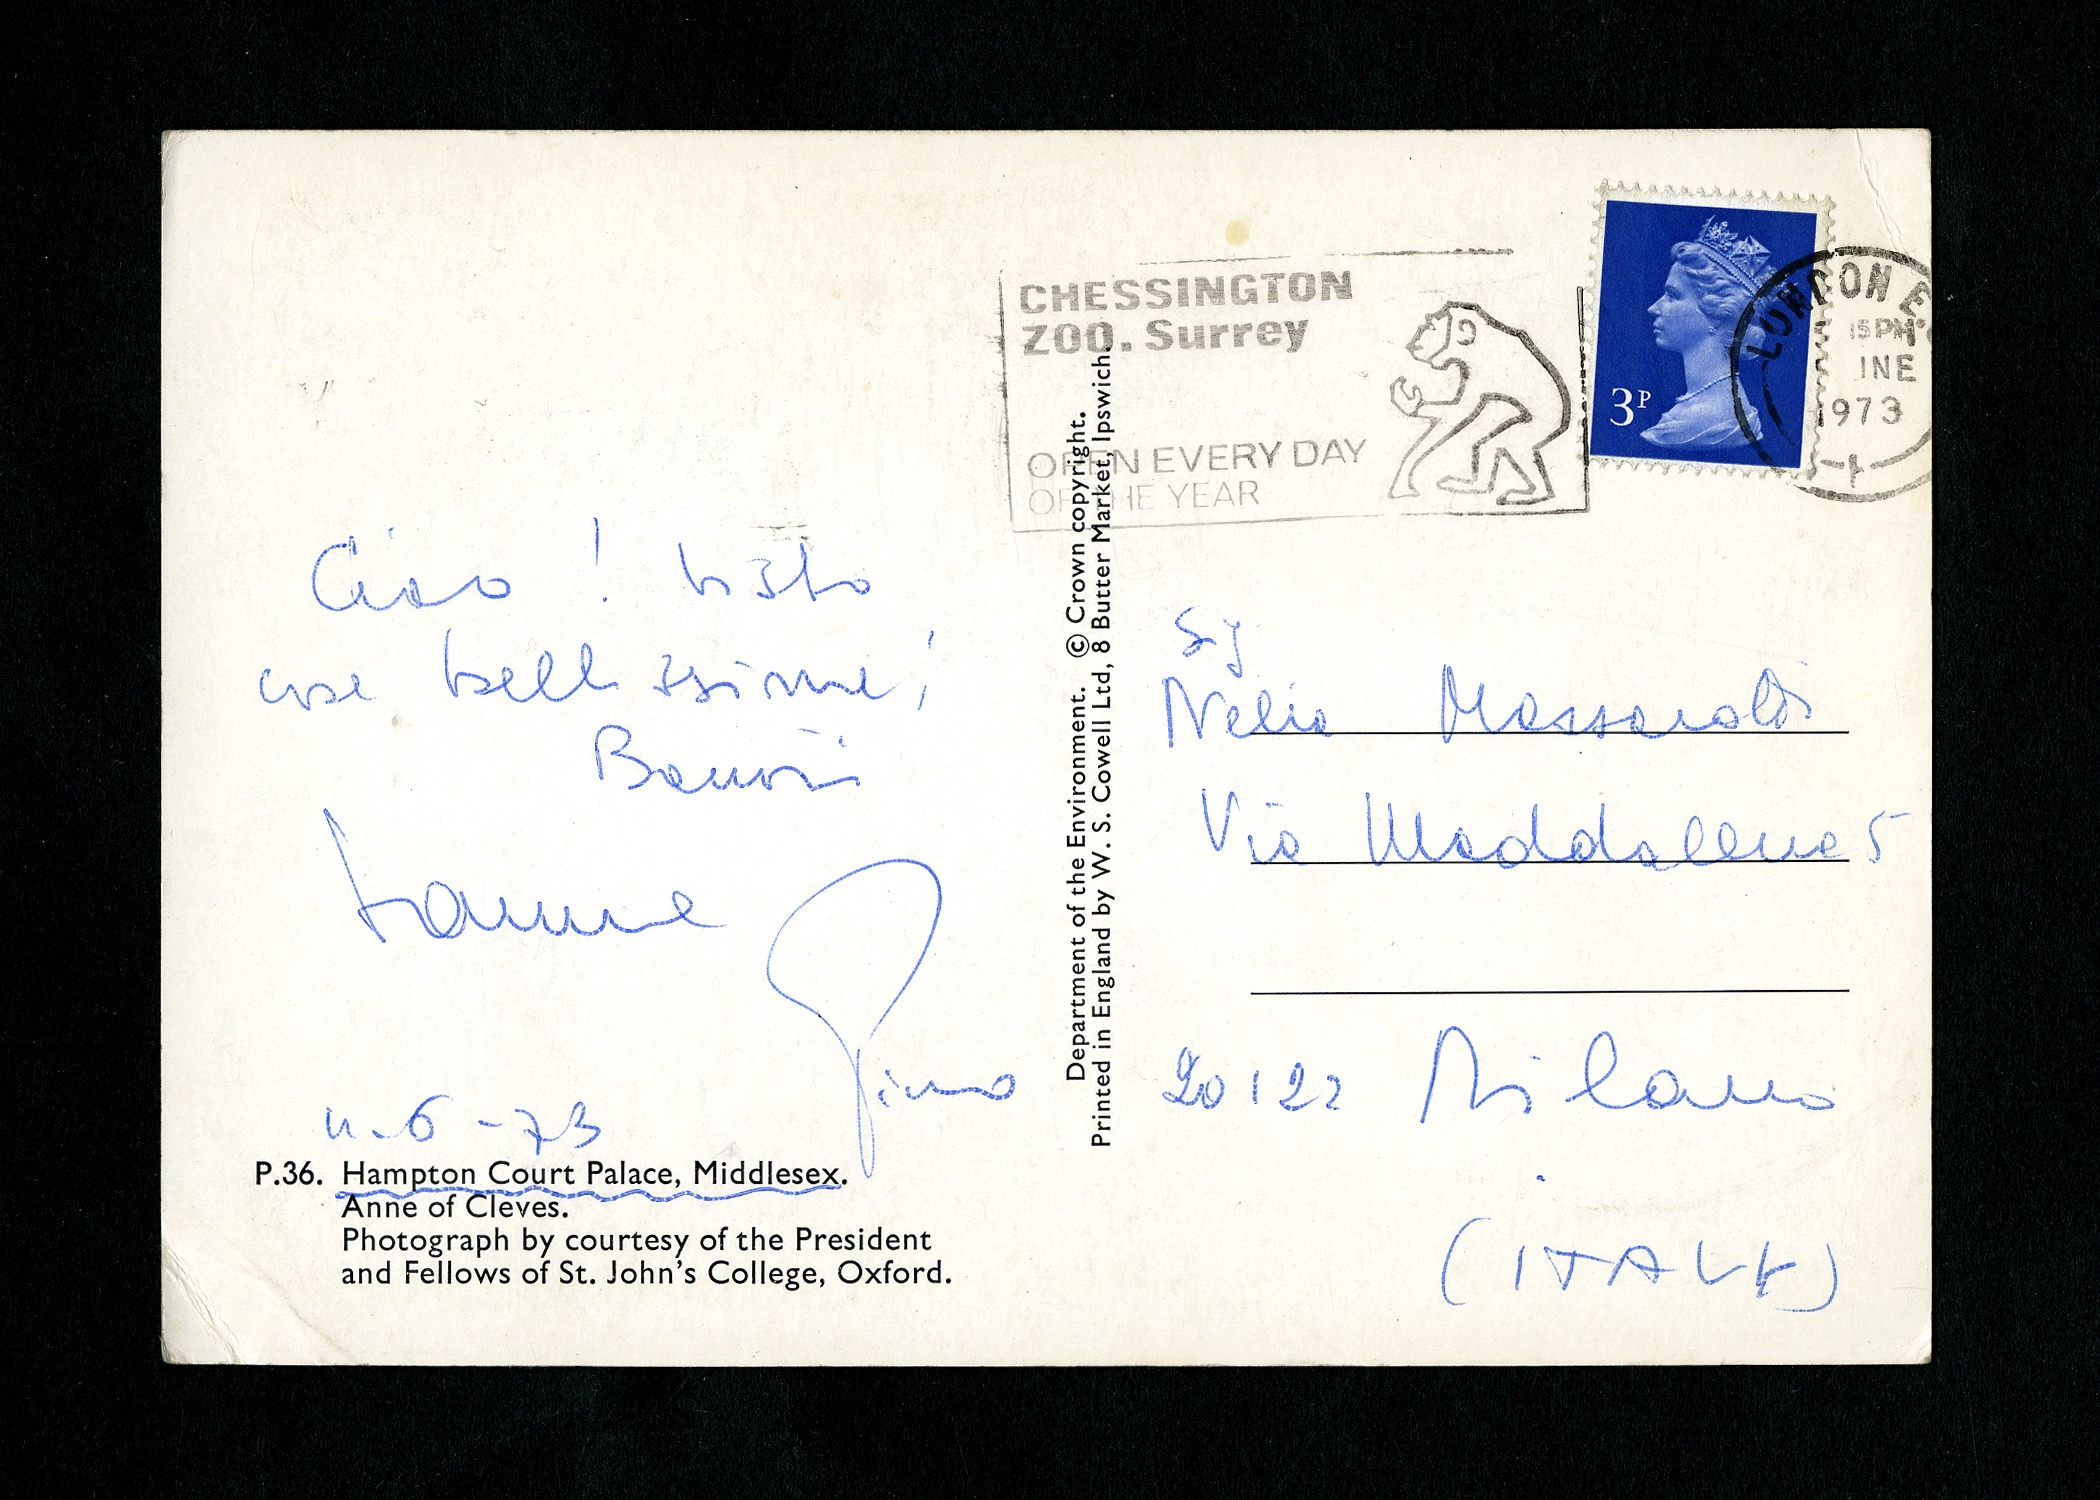 CHESSINGTON
ZOO. Surrey
OPEN EVERY DAY
OF THE YEAR
3P
LONDON E
15 PM
1973
Ciao!
cose bellissime!
Gino
11-6-73
P.36. Hampton Court Palace, Middlesex.
Anne of Cleves.
Photograph by courtesy of the President
and Fellows of St. John's College, Oxford.
Department of the Environment. © Crown copyright.
Printed in England by W. S. Cowell Ltd, 8 Butter Market, Ipswich.
Nelia Massarotti
Via Maddalena 5
20122 Milano
(ITALY)